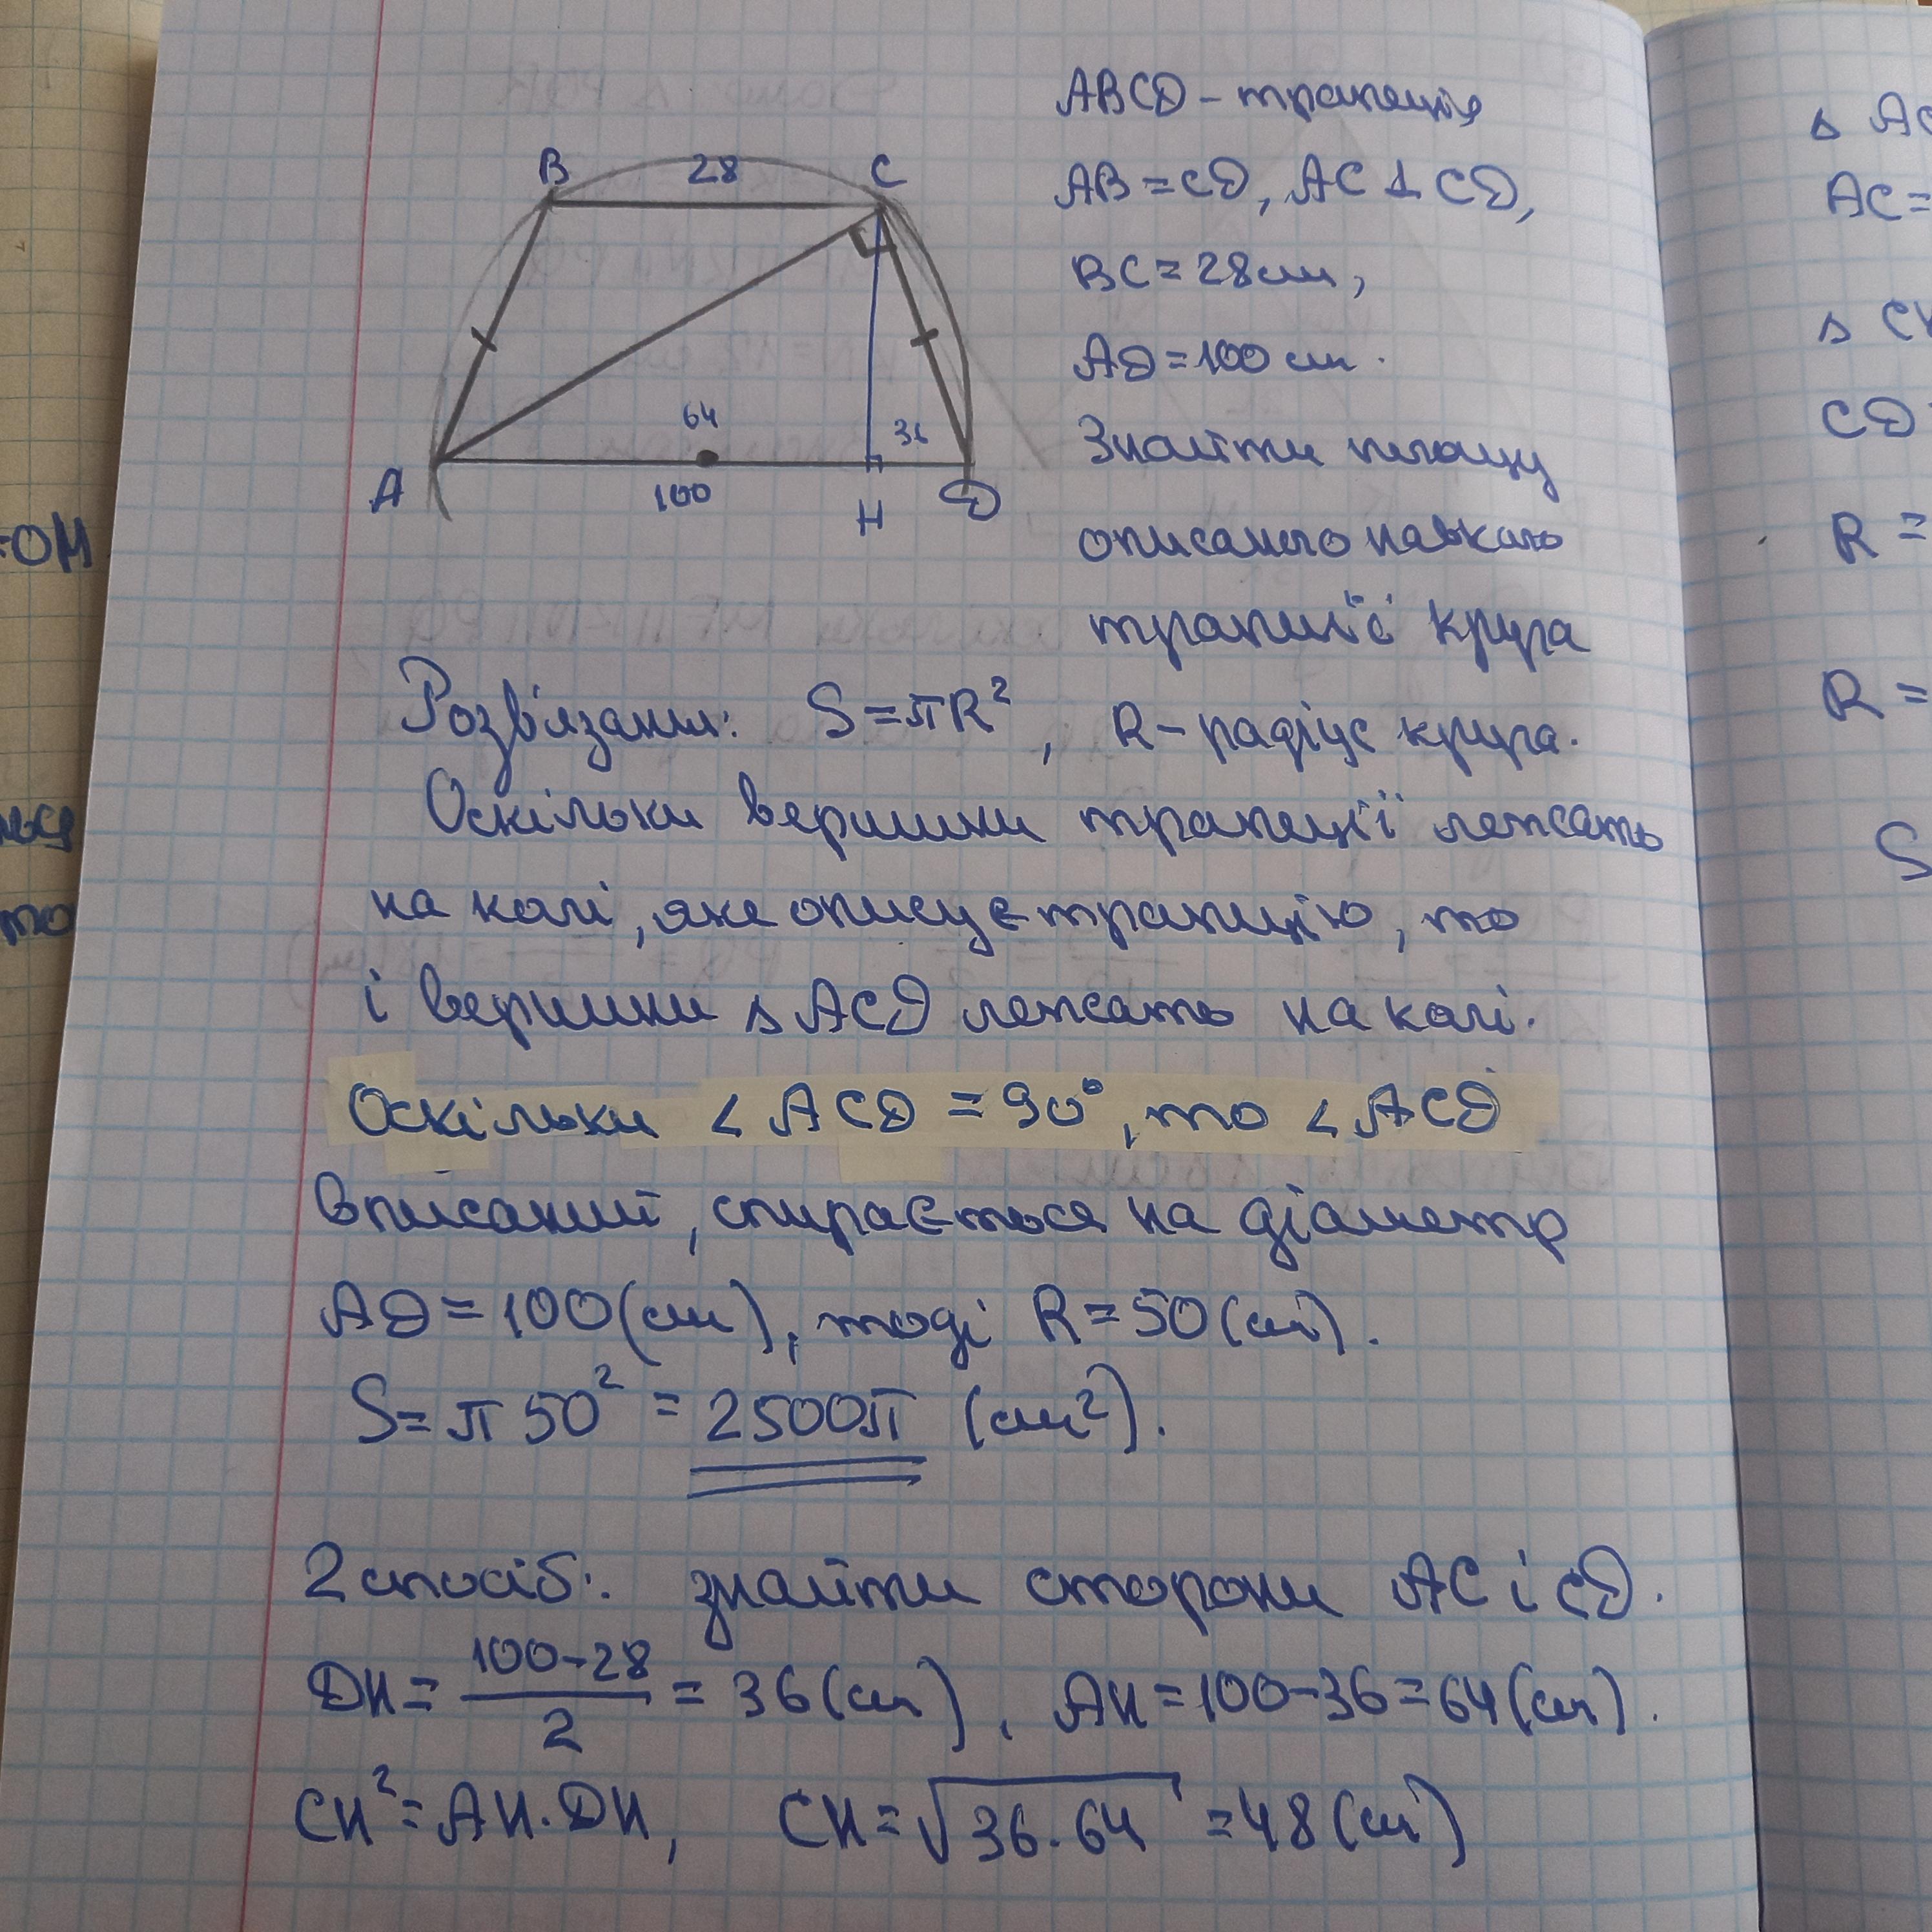 B 28 C
64
36
A 100 H D
ABCD – трапеція
AB = CD, AC ⊥ CD,
BC = 28 см,
AD = 100 см.
Знайти площу
описаного навколо
трапиції круга
Розв'язання: S = πR², R – радіус круга.
Оскільки вершини трапеції лежать
на колі, яке описує трапицію, то
і вершини △ ACD лежать на колі.
Оскільки ∠ ACD = 90°, то ∠ ACD
вписаний, спирається на діаметр
AD = 100 (см), тоді R = 50 (см).
S = π 50² = 2500π (см²).
2 спосіб: знайти сторони AC і CD.
DH = (100 – 28)/2 = 36 (см), AH = 100 – 36 = 64 (см).
CH² = AH · DH, CH = √36 · 64 = 48 (см)
ОН
то
△ AC
AC =
△ CH
CD
R =
R =
S